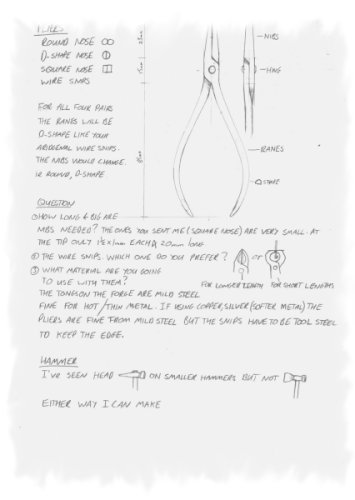 PLIERS
ROUND NOSE
D-SHAPE NOSE
SQUARE NOSE
WIRE SNIPS
NIBS
HNG
RANES
FOR ALL FOUR PAIRS
THE RANES WILL BE
D-SHAPE LIKE YOUR
WIRE SNIPS.
THE NIBS WOULD CHANGE.
IE ROUND, D-SHAPE.
QUESTION
① HOW LONG & BIG ARE
NIBS NEEDED? THE ONES YOU SENT ME (SQUARE NOSE) ARE VERY SMALL. AT
THE TIP ONLY 1½ x 1mm EACH & 20mm LONG
② THE WIRE SNIPS WHICH ONE DO YOU PREFER? OR
FOR LONGER LENGTH FOR SHORT LENGTHS
③ WHAT MATERIAL ARE YOU GOING
TO USE WITH THEM?
THE TONGS IN THE FORGE ARE MILD STEEL
FINE FOR HOT/THIN METAL. IF USING COPPER, SILVER (SOFTER METAL) THE
PLIERS ARE FINE FROM MILD STEEL BUT THE SNIPS HAVE TO BE TOOL STEEL
TO KEEP THE EDGE.
HAMMER
I'VE SEEN HEAD ON SMALLER HAMMERS BUT NOT
EITHER WAY I CAN MAKE